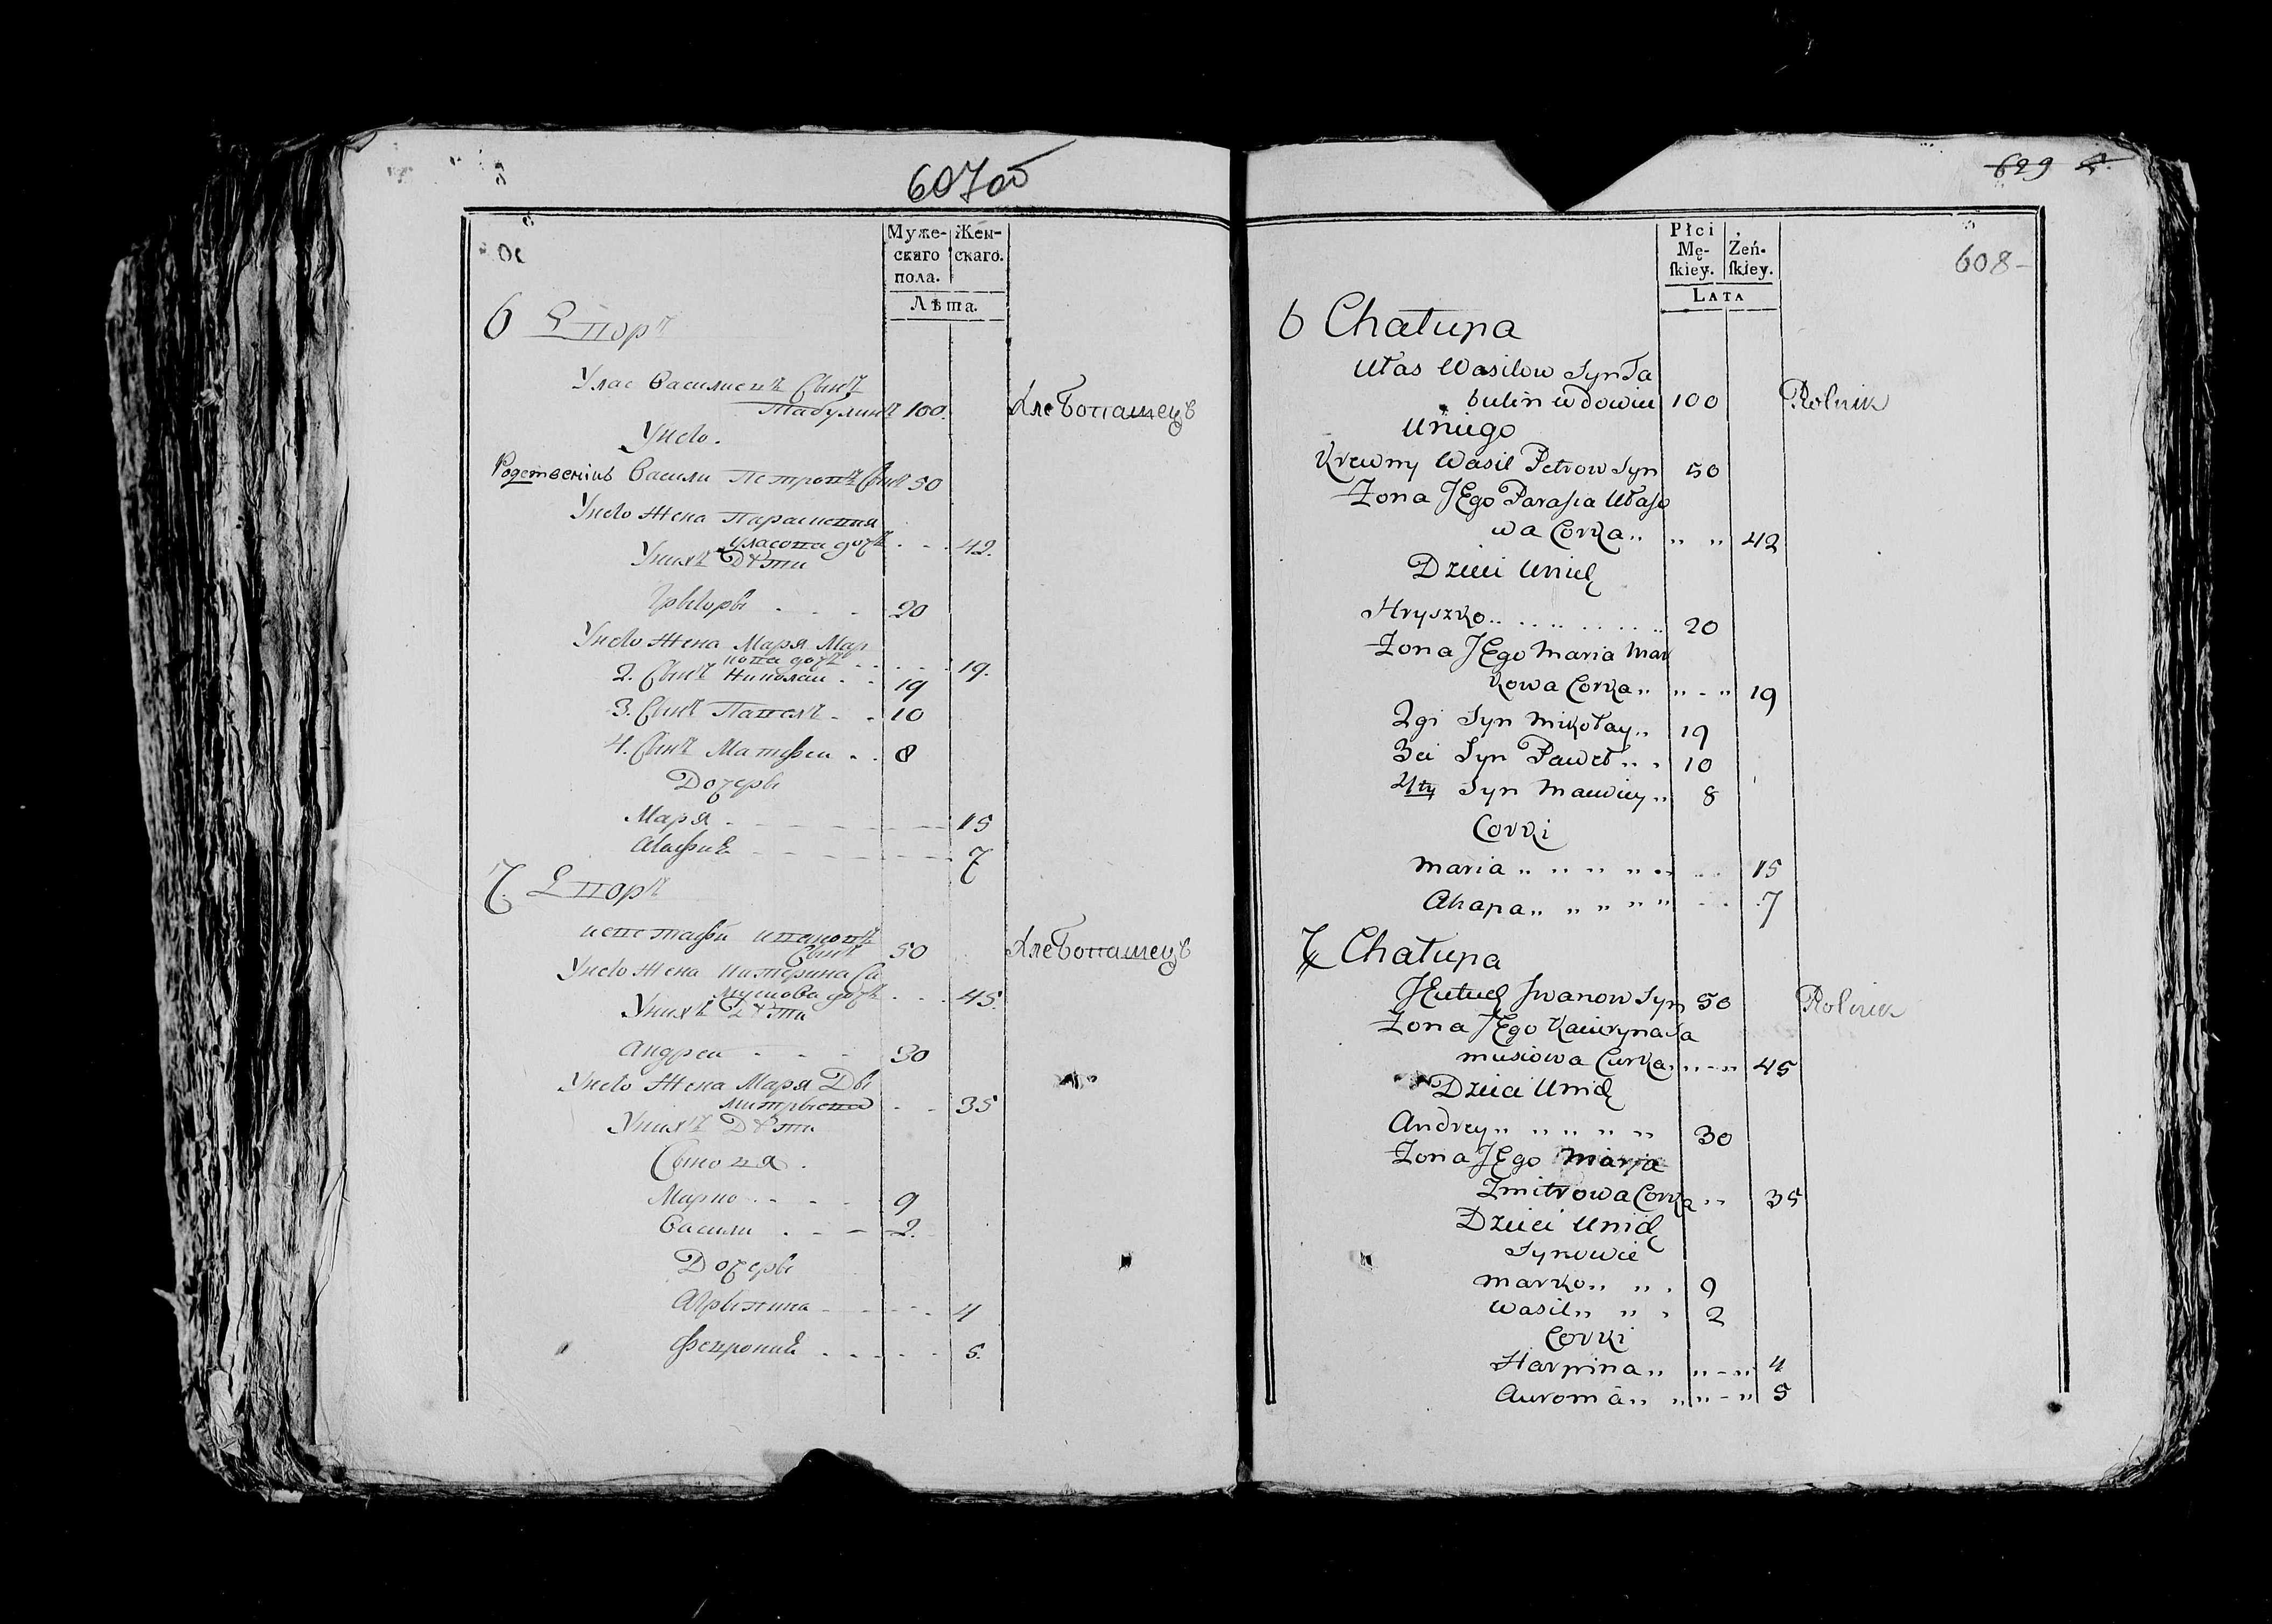 607об
Муже-
скаго
пола.
Жен-
скаго.
Лѣта.
6 Дворъ
Улас Василиевъ Сынъ
Табулинъ 100. Хлебопашецъ
Унево.
Родственікъ Василий Петровъ Сынъ 50
Унево Жена Парасковия
Уласова дочъ . . . 42.
Унихъ Дѣти
Григорый . . . 20
Унево Жена Маря Мар
кова дочъ . . . . . 19.
2. Сынъ Николай . . 19
3. Сынъ Павелъ . . 10
4. Сынъ Матфеи . . 8
Дочеры
Маря 15
Агафия 7
7. Дворъ
Ивановъ
Сынъ 50 Хлебопашецъ
Унево Жена Катерина Са
мусова дочъ . . . 45.
Унихъ Дѣти
Андреи . . . 30
Унево Жена Маря Ды
митрыева . . 35
Унихъ Дѣти
Сыновя.
Марко . . . . 9
Василий . . . 2.
Дочеры
Агрыпина 4
5.
629
608-
Płci
Mę-
ſkiey.
Żeń-
ſkiey.
LATA
6 Chałupa
Ułas Wasilow Syn Ta
bulin wdowiec 100 Rolnik
Uniego
Krewny Wasil Petrow Syn 50
Zona JEgo Parasia Ułaso
wa Corka 42
Dzieci Unich
Hryszko 20
Zona JEgo Maria Mar
kowa Corka 19
2gi Syn Mikołay 19
3ci Syn Paweł 10
4ty Syn Maciey 8
Corki
Maria 15
Ahapa 7
7 Chałupa
Jwanow Syn 50 Rolnik
Zona JEgo Kateryna Sa
musiowa Curka 45
Dzieci Unich
Andrey 30
Zona JEgo Marja
Zmitrowa Corka 35
Dzieci Unich
Synowie
Marko 9
Wasil 2
Corki
Harpina 4
5